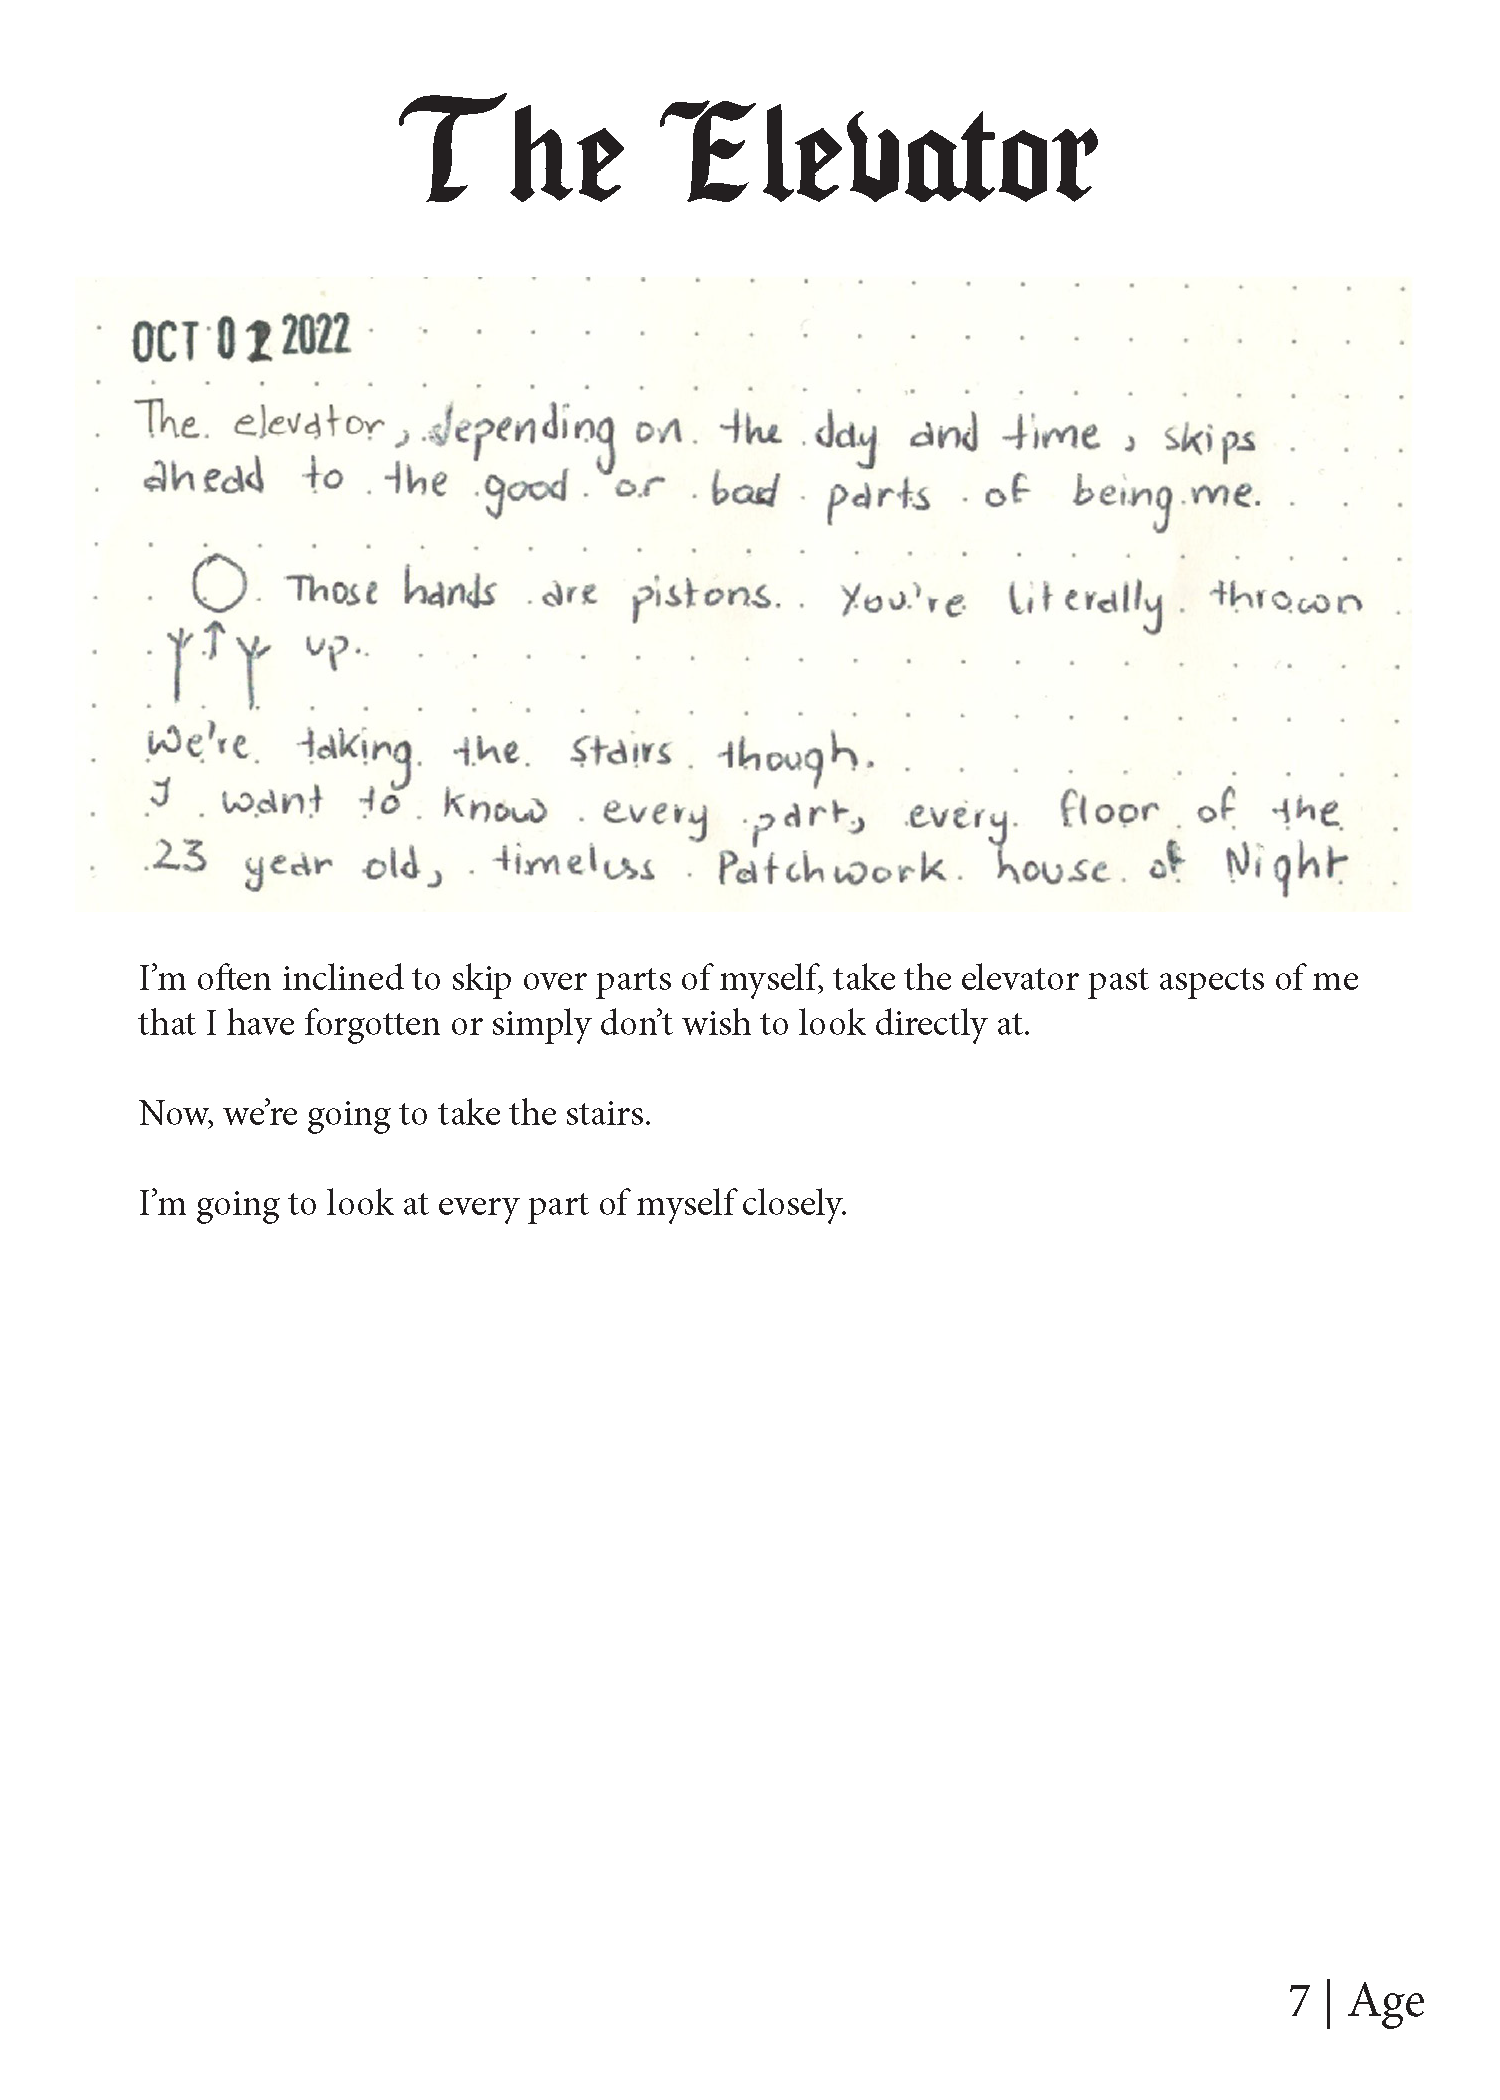 The Elevator
OCT 02 2022
The elevator, depending on the day and time, skips
ahead to the good or bad parts of being me.
Those hands are pistons. You're literally thrown
up.
We're taking the stairs though.
I want to know every part, every floor of the
23 year old, timeless Patchwork house of Night
I’m often inclined to skip over parts of myself, take the elevator past aspects of me
that I have forgotten or simply don’t wish to look directly at.
Now, we’re going to take the stairs.
I’m going to look at every part of myself closely.
7 | Age